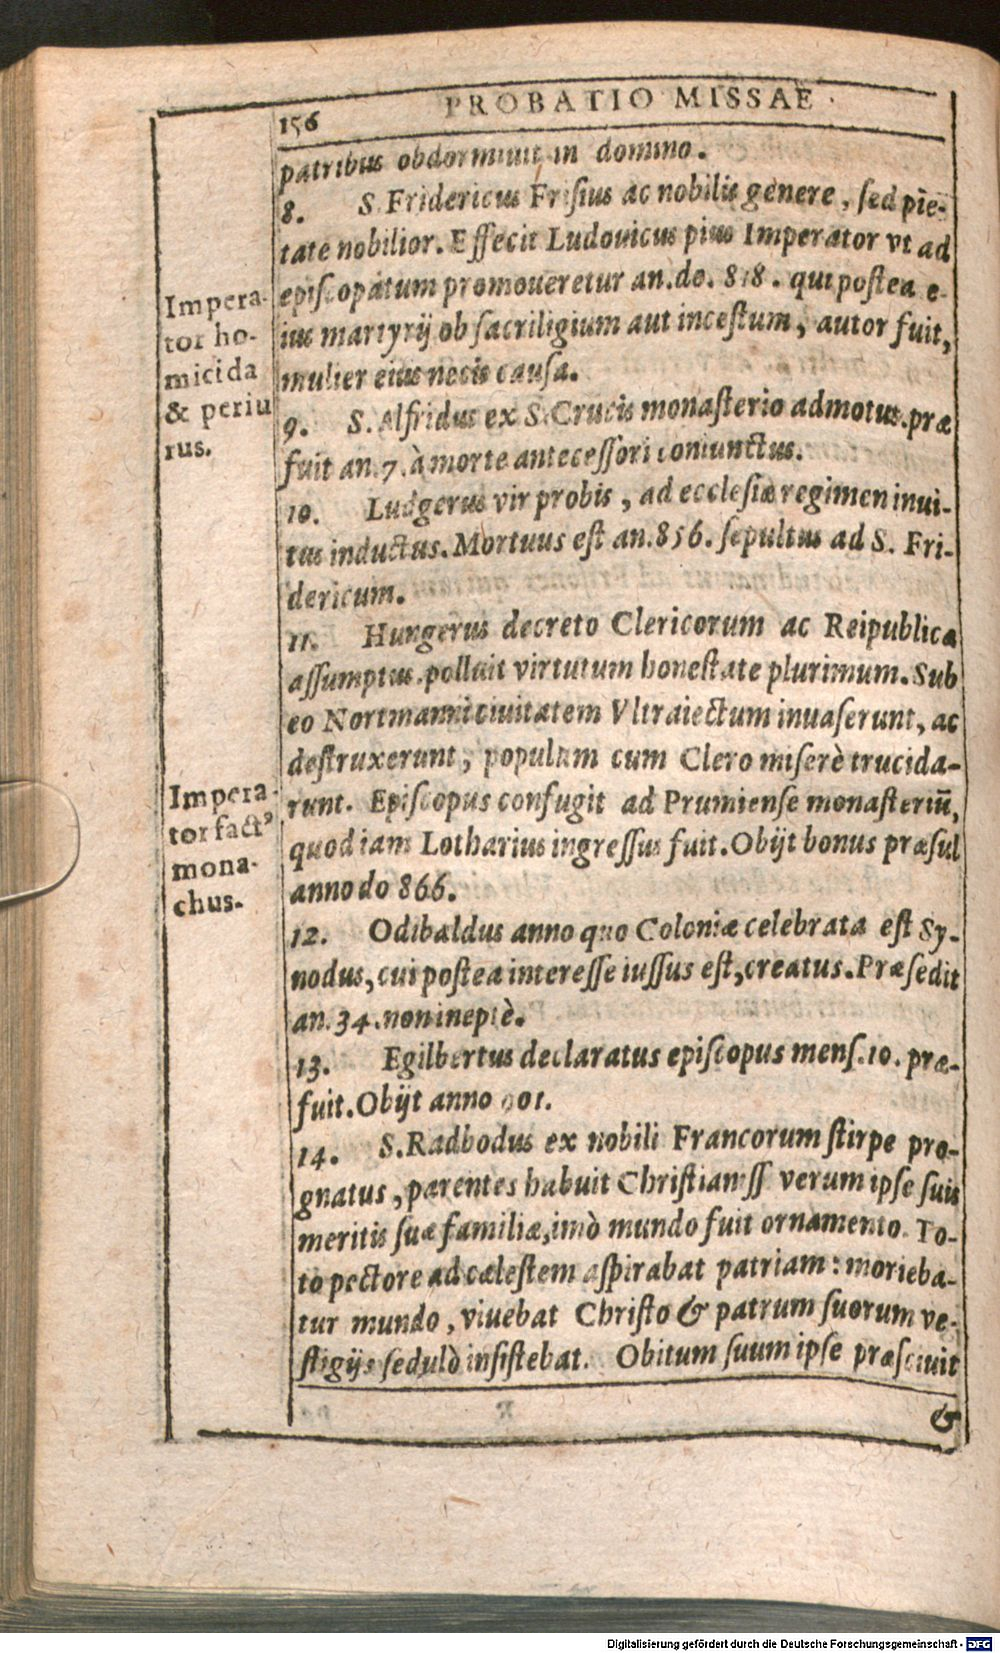 PROBATIO MISSAE.
156
patribus obdormiuit in domino.
8. S. Fridericus Frisius ac nobilis genere, sed pie-
tate nobilior. Effecit Ludouicus pius Imperator vt ad
episcopatum promoueretur an. do. 818. qui postea e-
ius martyrij ob sacriligium aut incestum, autor fuit,
mulier eius necis causa.
Impera-
tor ho-
micida
& periu
rus.
9. S. Alfridus ex S. Crucis monasterio admotus. præ
fuit an. 7. à morte antecessori coniunctus.
10. Ludgerus vir probis, ad ecclesiæ regimen inui-
tus inductus. Mortuus est an. 856. sepultus ad S. Fri-
dericum.
11. Hungerus decreto Clericorum ac Reipublicæ
assumptus. polluit virtutum honestate plurimum. Sub
eo Nortmanni ciuitatem Vltraiectum inuaserunt, ac
destruxerunt, populum cum Clero miserè trucida-
runt. Episcopus confugit ad Prumiense monasteriũ,
quod iam Lotharius ingressus fuit. Obijt bonus præsul
anno do 866.
Impera-
tor factꝰ
mona-
chus.
12. Odibaldus anno quo Coloniæ celebrata est Sy-
nodus, cui postea interesse iussus est, creatus. Præsedit
an. 34. non ineptè.
13. Egilbertus declaratus episcopus mens. 10. præ-
fuit. Obijt anno 901.
14. S. Radbodus ex nobili Francorum stirpe pro-
gnatus, parentes habuit Christianiss verum ipse suis
meritis suæ familiæ, imò mundo fuit ornamento. To-
to pectore ad cælestem aspirabat patriam: morieba-
tur mundo, viuebat Christo & patrum suorum ve-
stigijs sedulò insistebat. Obitum suum ipse præsciuit
&
Digitalisierung gefördert durch die Deutsche Forschungsgemeinschaft - DFG